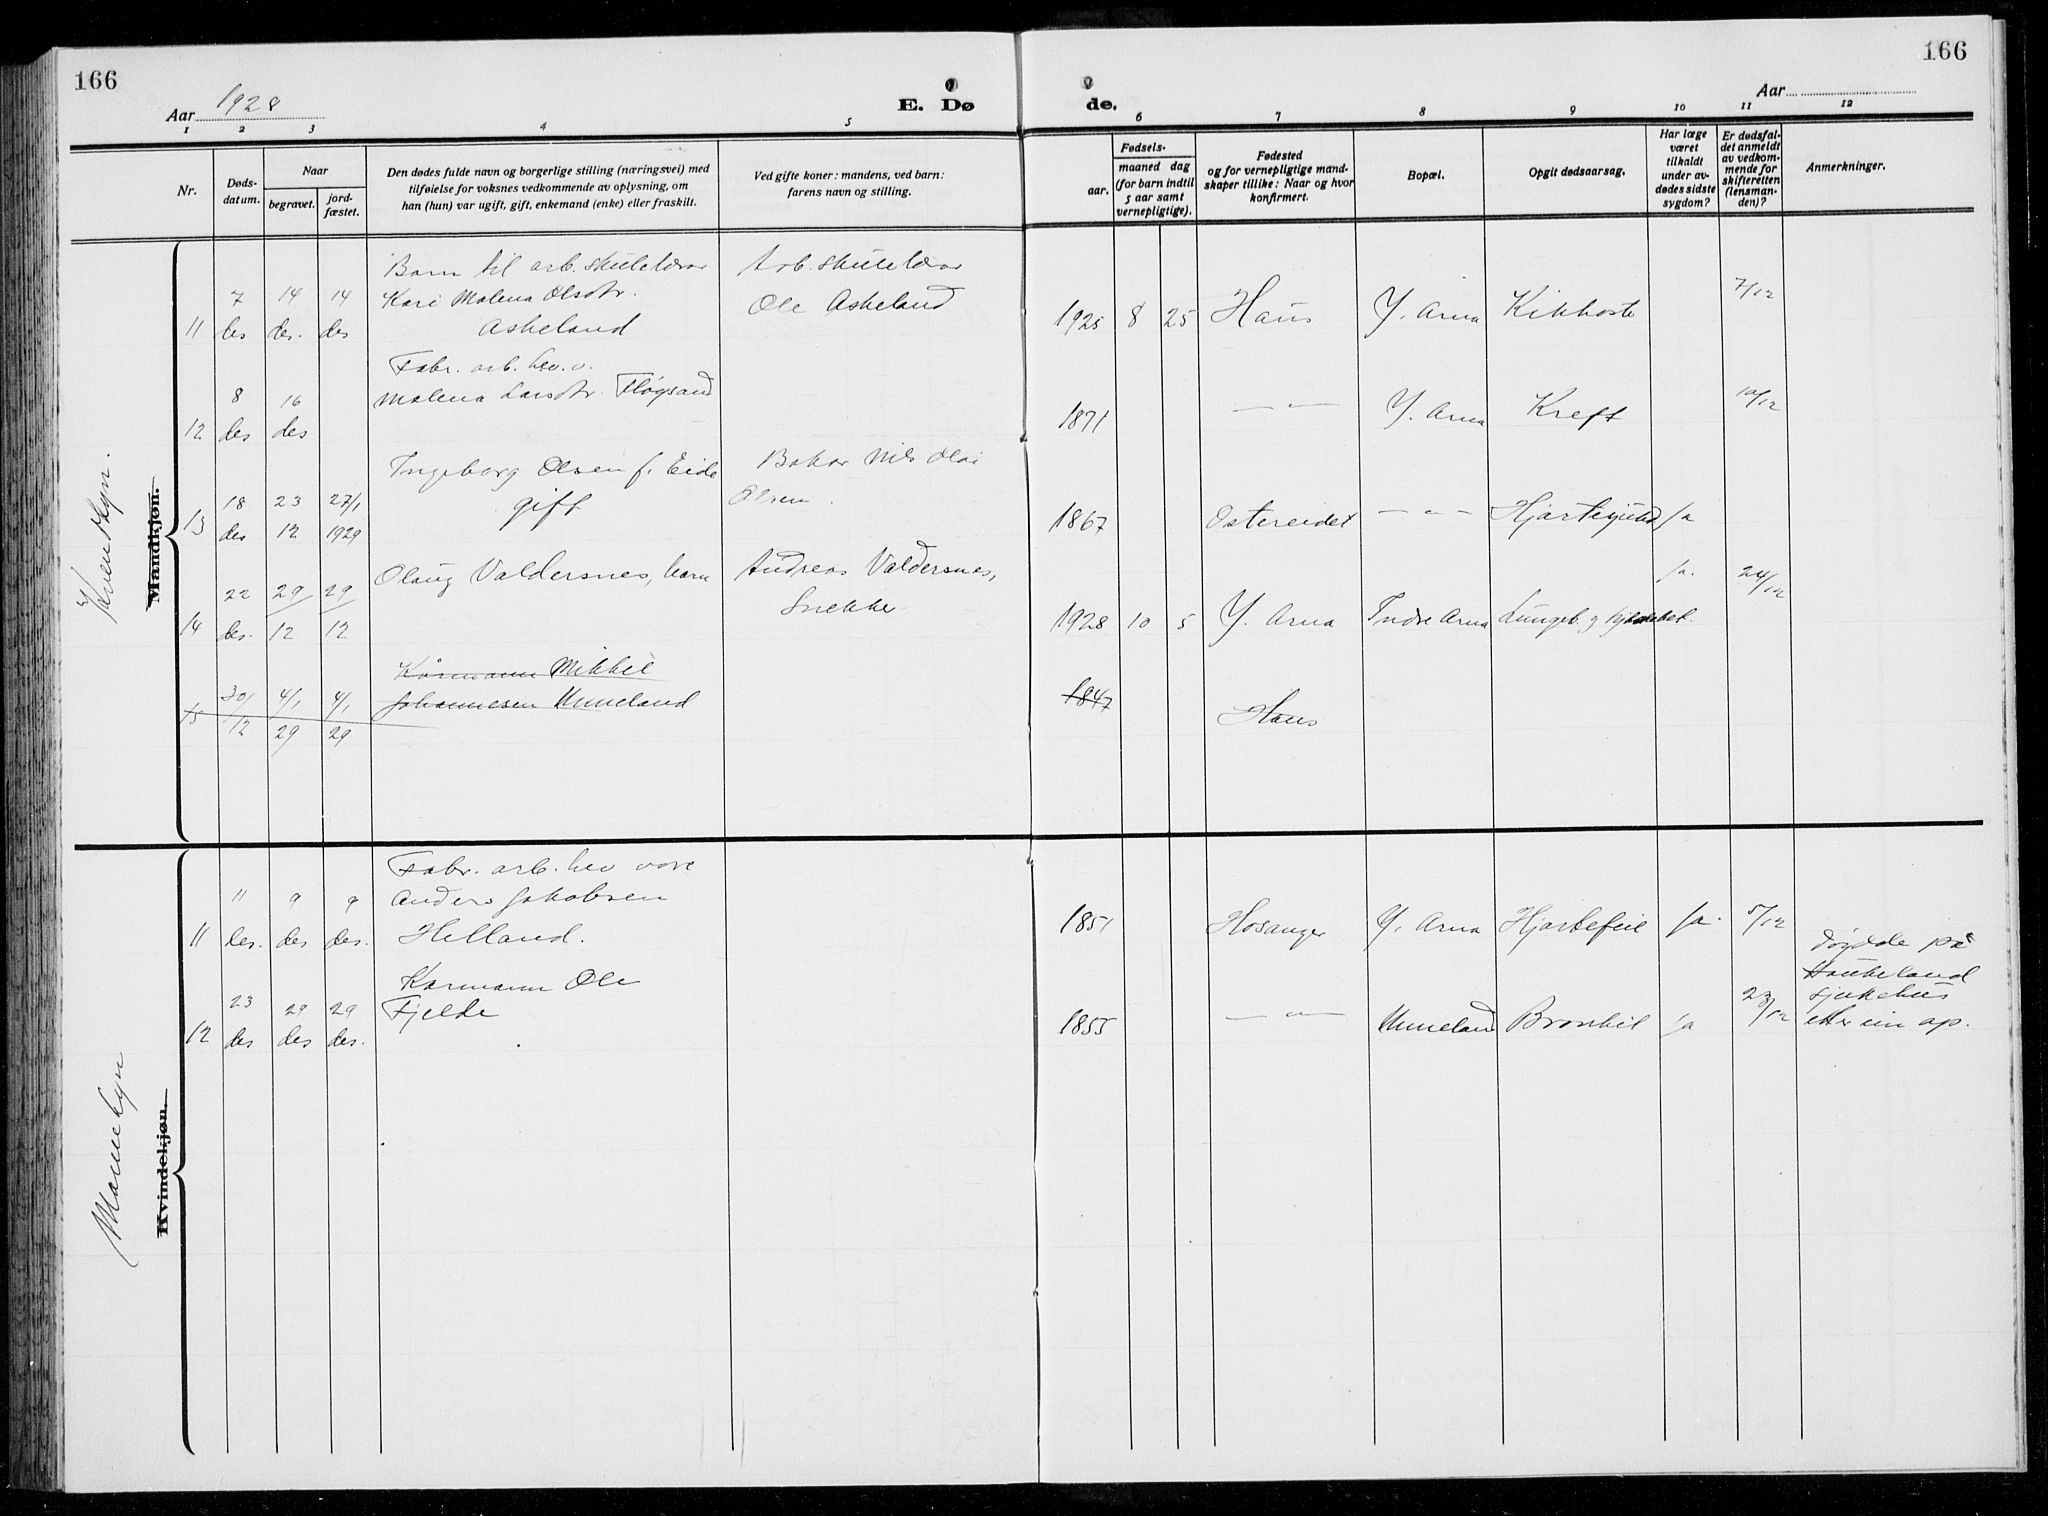 166
166
Aar 1928
E. Dø
de.
Aar
1 2 3 4 5
6 7 8 9 10 11 12
Nr.
Døds-
datum.
Naar
begravet.
jord-
fæstet.
Den dødes fulde navn og borgerlige stilling (næringsvei) med
tilføielse for voksnes vedkommende av oplysning, om
han (hun) var ugift, gift, enkemand (enke) eller fraskilt.
Ved gifte koner: mandens, ved barn:
farens navn og stilling.
Fødsels-
aar.
maaned dag
(for barn indtil
5 aar samt
vernepligtige).
Fødested
og for vernepligtige mand-
skaper tillike: Naar og hvor
konfirmert.
Bopæl.
Opgit dødsaarsag.
Har læge
været
tilkaldt
under av-
dødes sidste
sygdom?
Er dødsfal-
det anmeldt
av vedkom-
mende for
skifteretten
(lensman-
den)?
Anmerkninger.
Kvendkyn.
Mandkjøn.
Barn til arb. skulelærar
Kari Malena Olsdtr.
Askeland
Arb. skulelærar
Ole Askeland
11 7 des 14 des. 14 des
1925 8 25 Haus Y. Arna Kikhoste 7/12
Fabr. arb. hev. v.
Malena Larsdtr. Fløgsand
12 8 des 16 des
1871 — " — Y. Arna Kreft 10/12
Ingeborg Olsen f. Eide
gift
Bakar Nils Olai
Olsen.
13 18 des 23 12 27/1 1929
1867 Ostereidet — " — Ja
Olaug Valdersnes, barn
Andreas Valdersnes,
Snekke
14 22 des. 29/12 29/12
1928 10 5 Y. Arna Indre Arna ja. 24/12
Kårmann Mikkel
Johannesen Unneland
15 30/12 4/1 29 4/1 29
1847 Haus
Mannekyn
Kvindekjøn.
Fabr. arb. hev vore
Anders Jakobsen
Helland.
11 11 des. 9 des 9 des.
1851 Hosanger Y. Arna Hjartefeil Ja. 5/12
Karmann Ole
Fjelde
12 23 des 29 des 29 des.
1855 — " — Unneland Bronkit Ja 23/12
døydde på
Haukeland
sjukehus
etter ein op.